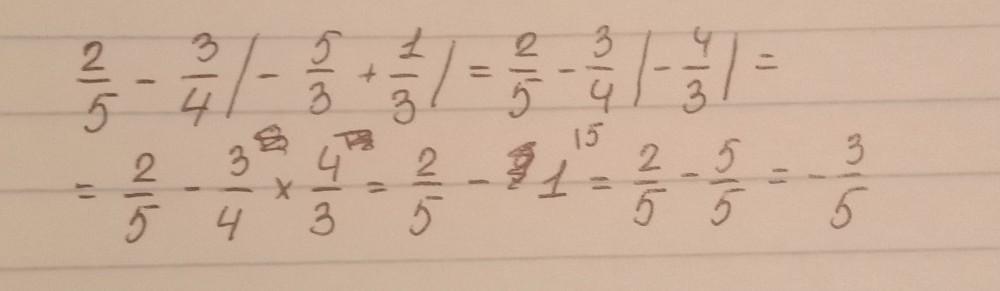 2/5 - 3/4 |- 5/3 + 1/3| = 2/5 - 3/4 |- 4/3| =
= 2/5 - 3/4 × 4/3 = 2/5 - 1 /5 = 2/5 - 5/5 = - 3/5